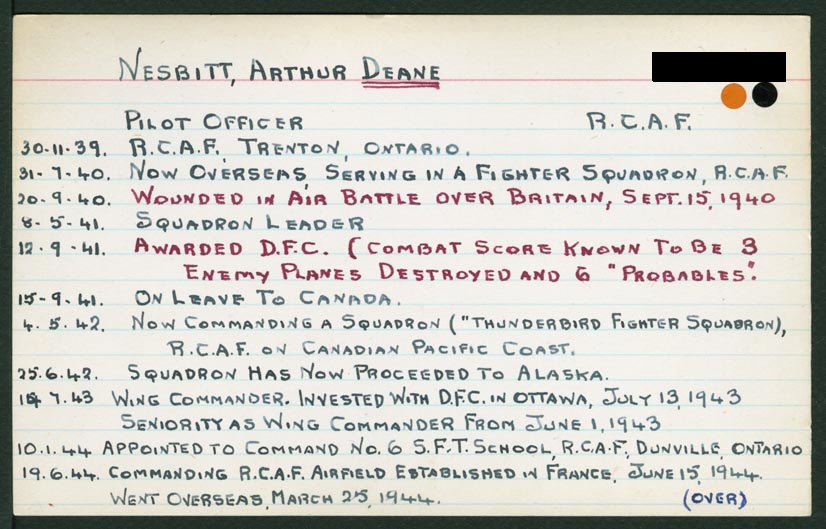 NESBITT, ARTHUR DEANE
PILOT OFFICER R.C.A.F.
30-11-39. R.C.A.F. TRENTON, ONTARIO.
31-7-40. NOW OVERSEAS, SERVING IN A FIGHTER SQUADRON, R.C.A.F.
20-9-40. WOUNDED IN AIR BATTLE OVER BRITAIN, SEPT. 15, 1940
8-5-41. SQUADRON LEADER
12-9-41. AWARDED D.F.C. (COMBAT SCORE KNOWN TO BE 3
ENEMY PLANES DESTROYED AND 6 "PROBABLES".
15-9-41. ON LEAVE TO CANADA.
4.5.42. NOW COMMANDING A SQUADRON ("THUNDERBIRD FIGHTER SQUADRON),
R.C.A.F. ON CANADIAN PACIFIC COAST.
25.6.42. SQUADRON HAS NOW PROCEEDED TO ALASKA.
7.43 WING COMMANDER. INVESTED WITH D.F.C. IN OTTAWA, JULY 13, 1943
SENIORITY AS WING COMMANDER FROM JUNE 1, 1943
10.1.44 APPOINTED TO COMMAND NO. 6 S.F.T. SCHOOL, R.C.A.F., DUNVILLE, ONTARIO
19.6.44. COMMANDING R.C.A.F. AIRFIELD ESTABLISHED IN FRANCE, JUNE 15, 1944.
WENT OVERSEAS, MARCH 25, 1944. (OVER)